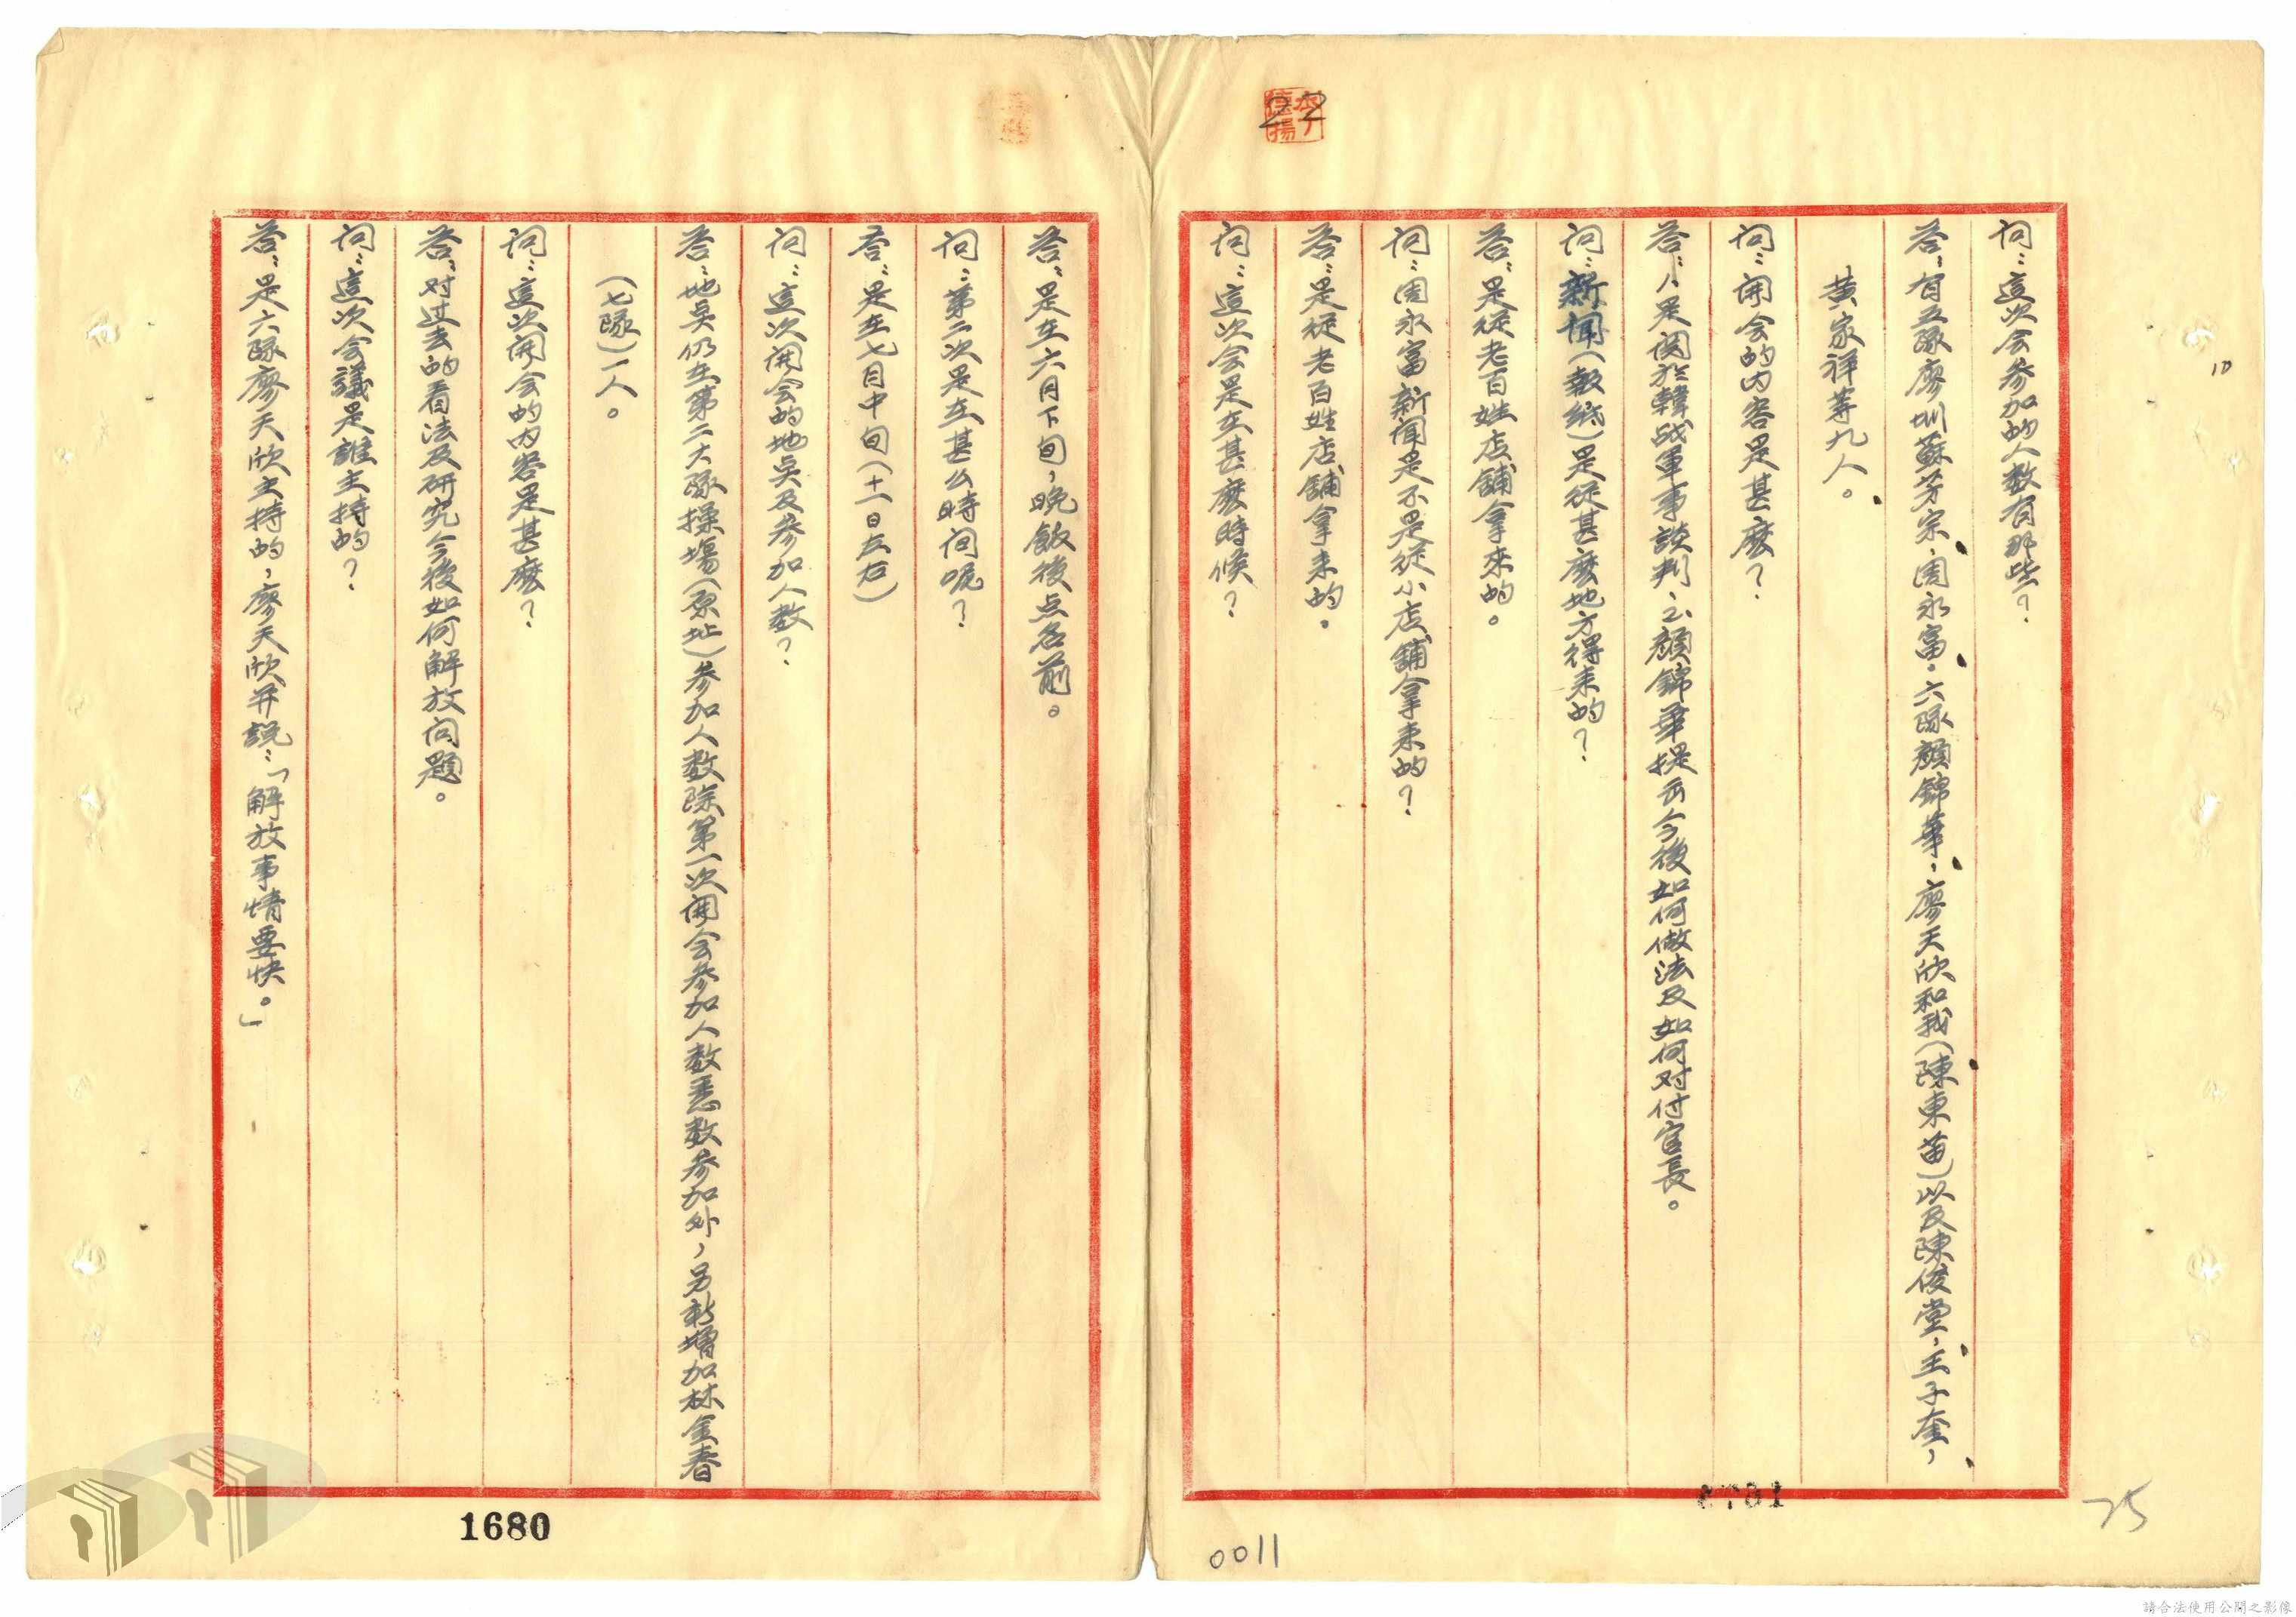 22
10
问：這次会参加的人数有那些？
答：有五隊廖圳、蘇芳宗、周永富。六隊顏錦華，廖天欣和我（陳東苗）以及陳俊堂，王子奎，
黄家祥等九人。
问：開会的内容是甚麽？
答：1、是関於韓战軍事談判、2、顏錦華提出今後如何做法及如何对付官長。
问：新聞（報紙）是従甚麽地方得来的？
答：是従老百姓店舖拿来的。
问：周永富新闻是不是従小店舖拿来的？
答：是従老百姓店舖拿来的。
问：這次会是在甚麽時候？
答：是在六月下旬，晚飯後点名前。
问：第二次是在甚么時间呢？
答：是在七月中旬（十一日左右）
问：這次開会的地点及参加人数？
答：地点仍在第二大隊操場（原址）参加人数除第一次開会参加人数悉数参加外，另新增加林金春
（七隊）一人。
问：這次開会的内容是甚麽？
答：对过去的看法及研究今後如何解放问題。
问：這次会議是誰主持的？
答：是六隊廖天欣主持的，廖天欣并説：「解放事情要快。」
1680
0011
75
請合法使用公開之影像